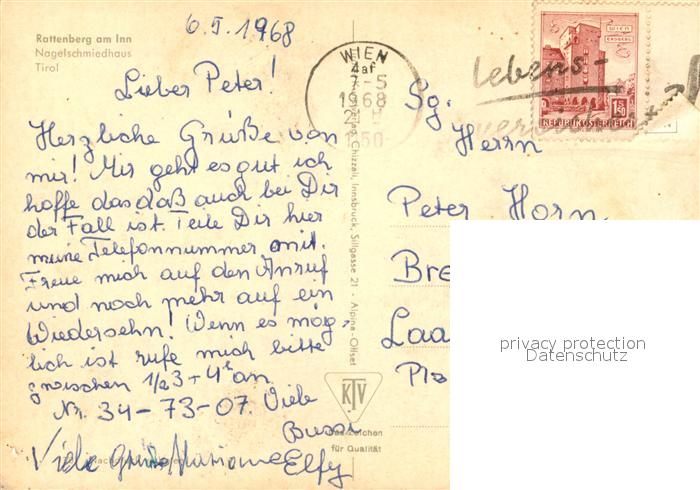 Rattenberg am Inn
Nagelschmiedhaus
Tirol
6.5.1968
Lieber Peter!
Herzliche Grüße von
mir! Mir geht es gut ich
hoffe das daß auch bei Dir
der Fall ist. Teile Dir hier
meine Telefonnummer mit.
Freue mich auf den Anruf
und noch mehr auf ein
Wiedersehn! Wenn es mög-
lich ist rufe mich bitte
zwischen 1/2 3 + 4h an
Nr. 34-73-07. Viele
Bussi
Elfy
Viele Grüße Marianne
WIEN
7-5
1968
150
Chizzali, Innsbruck, Sillgasse 21 - Alpina-Offset
KTV
Das Zeichen
für Qualität
lebens-
WIEN
ERDBERG
1.50
REPUBLIK ÖSTERREICH
Sg.
Herrn
Peter Horn
Bre
Laa
Pla
privacy protection
Datenschutz